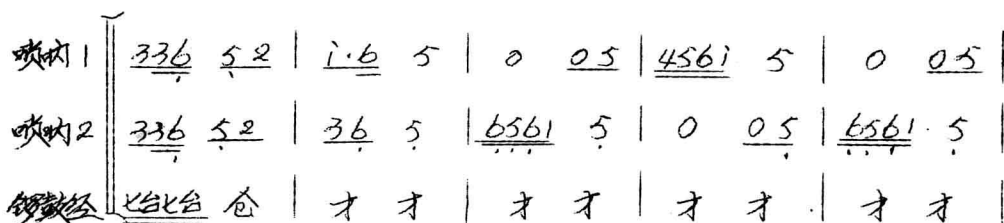 唢呐1 336 52 | i·6 5 | 0 05 | 456i 5 | 0 05 |
唢呐2 336 52 | 36 5 | 6561 5 | 0 05 | 6561 5 |
锣鼓经 七台七台 仓 | 才 才 | 才 才 | 才 才 | 才 才 |